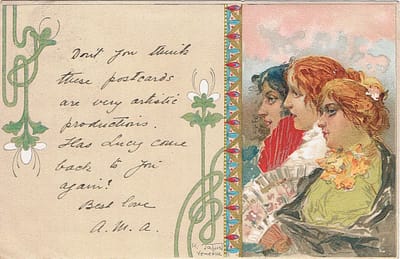 Don't you think
these postcards
are very artistic
productions.
Has Lucy come
back to you
again?
Best love
A. M. A.